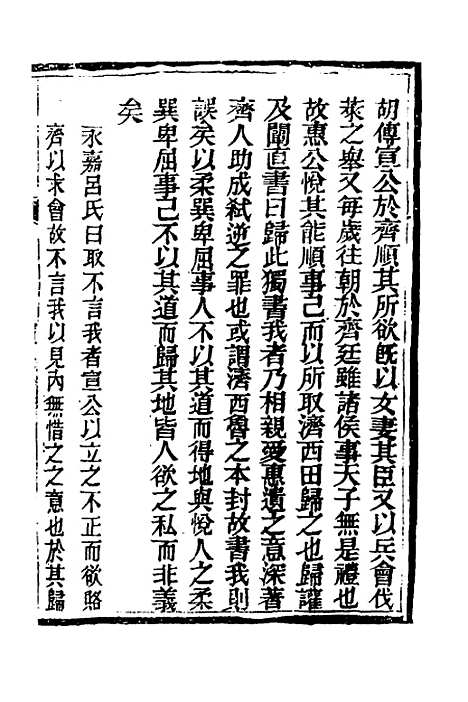 胡傳宣公於齊順其所欲旣以女妻其臣又以兵會伐
萊之舉又每歲往朝於齊廷雖諸侯事天子無是禮也
故惠公悅其能順事己而以所取濟西田歸之也歸讙
及闡直書曰歸此獨書我者乃相親愛惠遺之意深著
齊人助成弑逆之罪也或謂濟西魯之本封故書我則
誤矣以柔巽卑屈事人不以其道而得地與悅人之柔
巽卑屈事己不以其道而歸其地皆人欲之私而非義
矣
永嘉呂氏曰取不言我者宣公以立之不正而欲賂
齊以求會故不言我以見內無惜之之意也於其歸